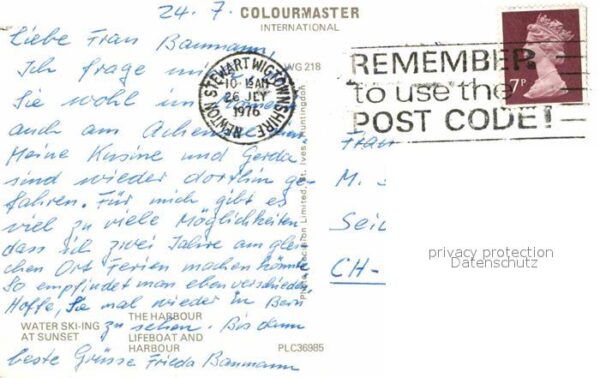 24.7.
COLOURMASTER
INTERNATIONAL
Liebe Frau Baumann,
Ich frage
WG 218
Sie wohl im
auch am
Meine Kusine und Gerda
sind wieder dorthin ge-
fahren. Für mich gibt es
viel zu viele Möglichkeiten
dass ich zwei Jahre am glei-
chen Ort Ferien machen könnte
So empfindet man eben verschieden.
Hoffe, Sie mal wieder in Bern
zu sehen. Bis dann
beste Grüsse Frieda Baumann
WATER SKI-ING
AT SUNSET
THE HARBOUR
LIFEBOAT AND
HARBOUR
PLC36985
Photo Precision Limited, St. Ives, Huntingdon
NEWTON STEWART WIGTOWNSHIRE
10-15AM
26 JLY
1976
REMEMBER
to use the
POST CODE!
7P
Frau
M. S
Seid
CH-
privacy protection
Datenschutz